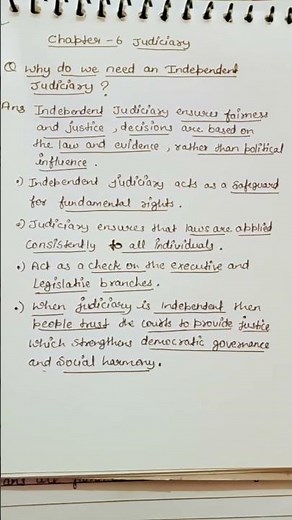 Chapter - 6 Judiciary
Q Why do we need an Independent
Judiciary ?
Ans Independent Judiciary ensures fairness
and justice , decisions are based on
the law and evidence , rather than political
influence .
•) Independent judiciary acts as a safeguard
for fundamental rights .
•) Judiciary ensures that laws are applied
consistently to all individuals .
•) Act as a check on the executive and
Legislative branches .
•) When judiciary is independent then
people trust the courts to provide justice
which strengthens democratic governance
and social harmony .